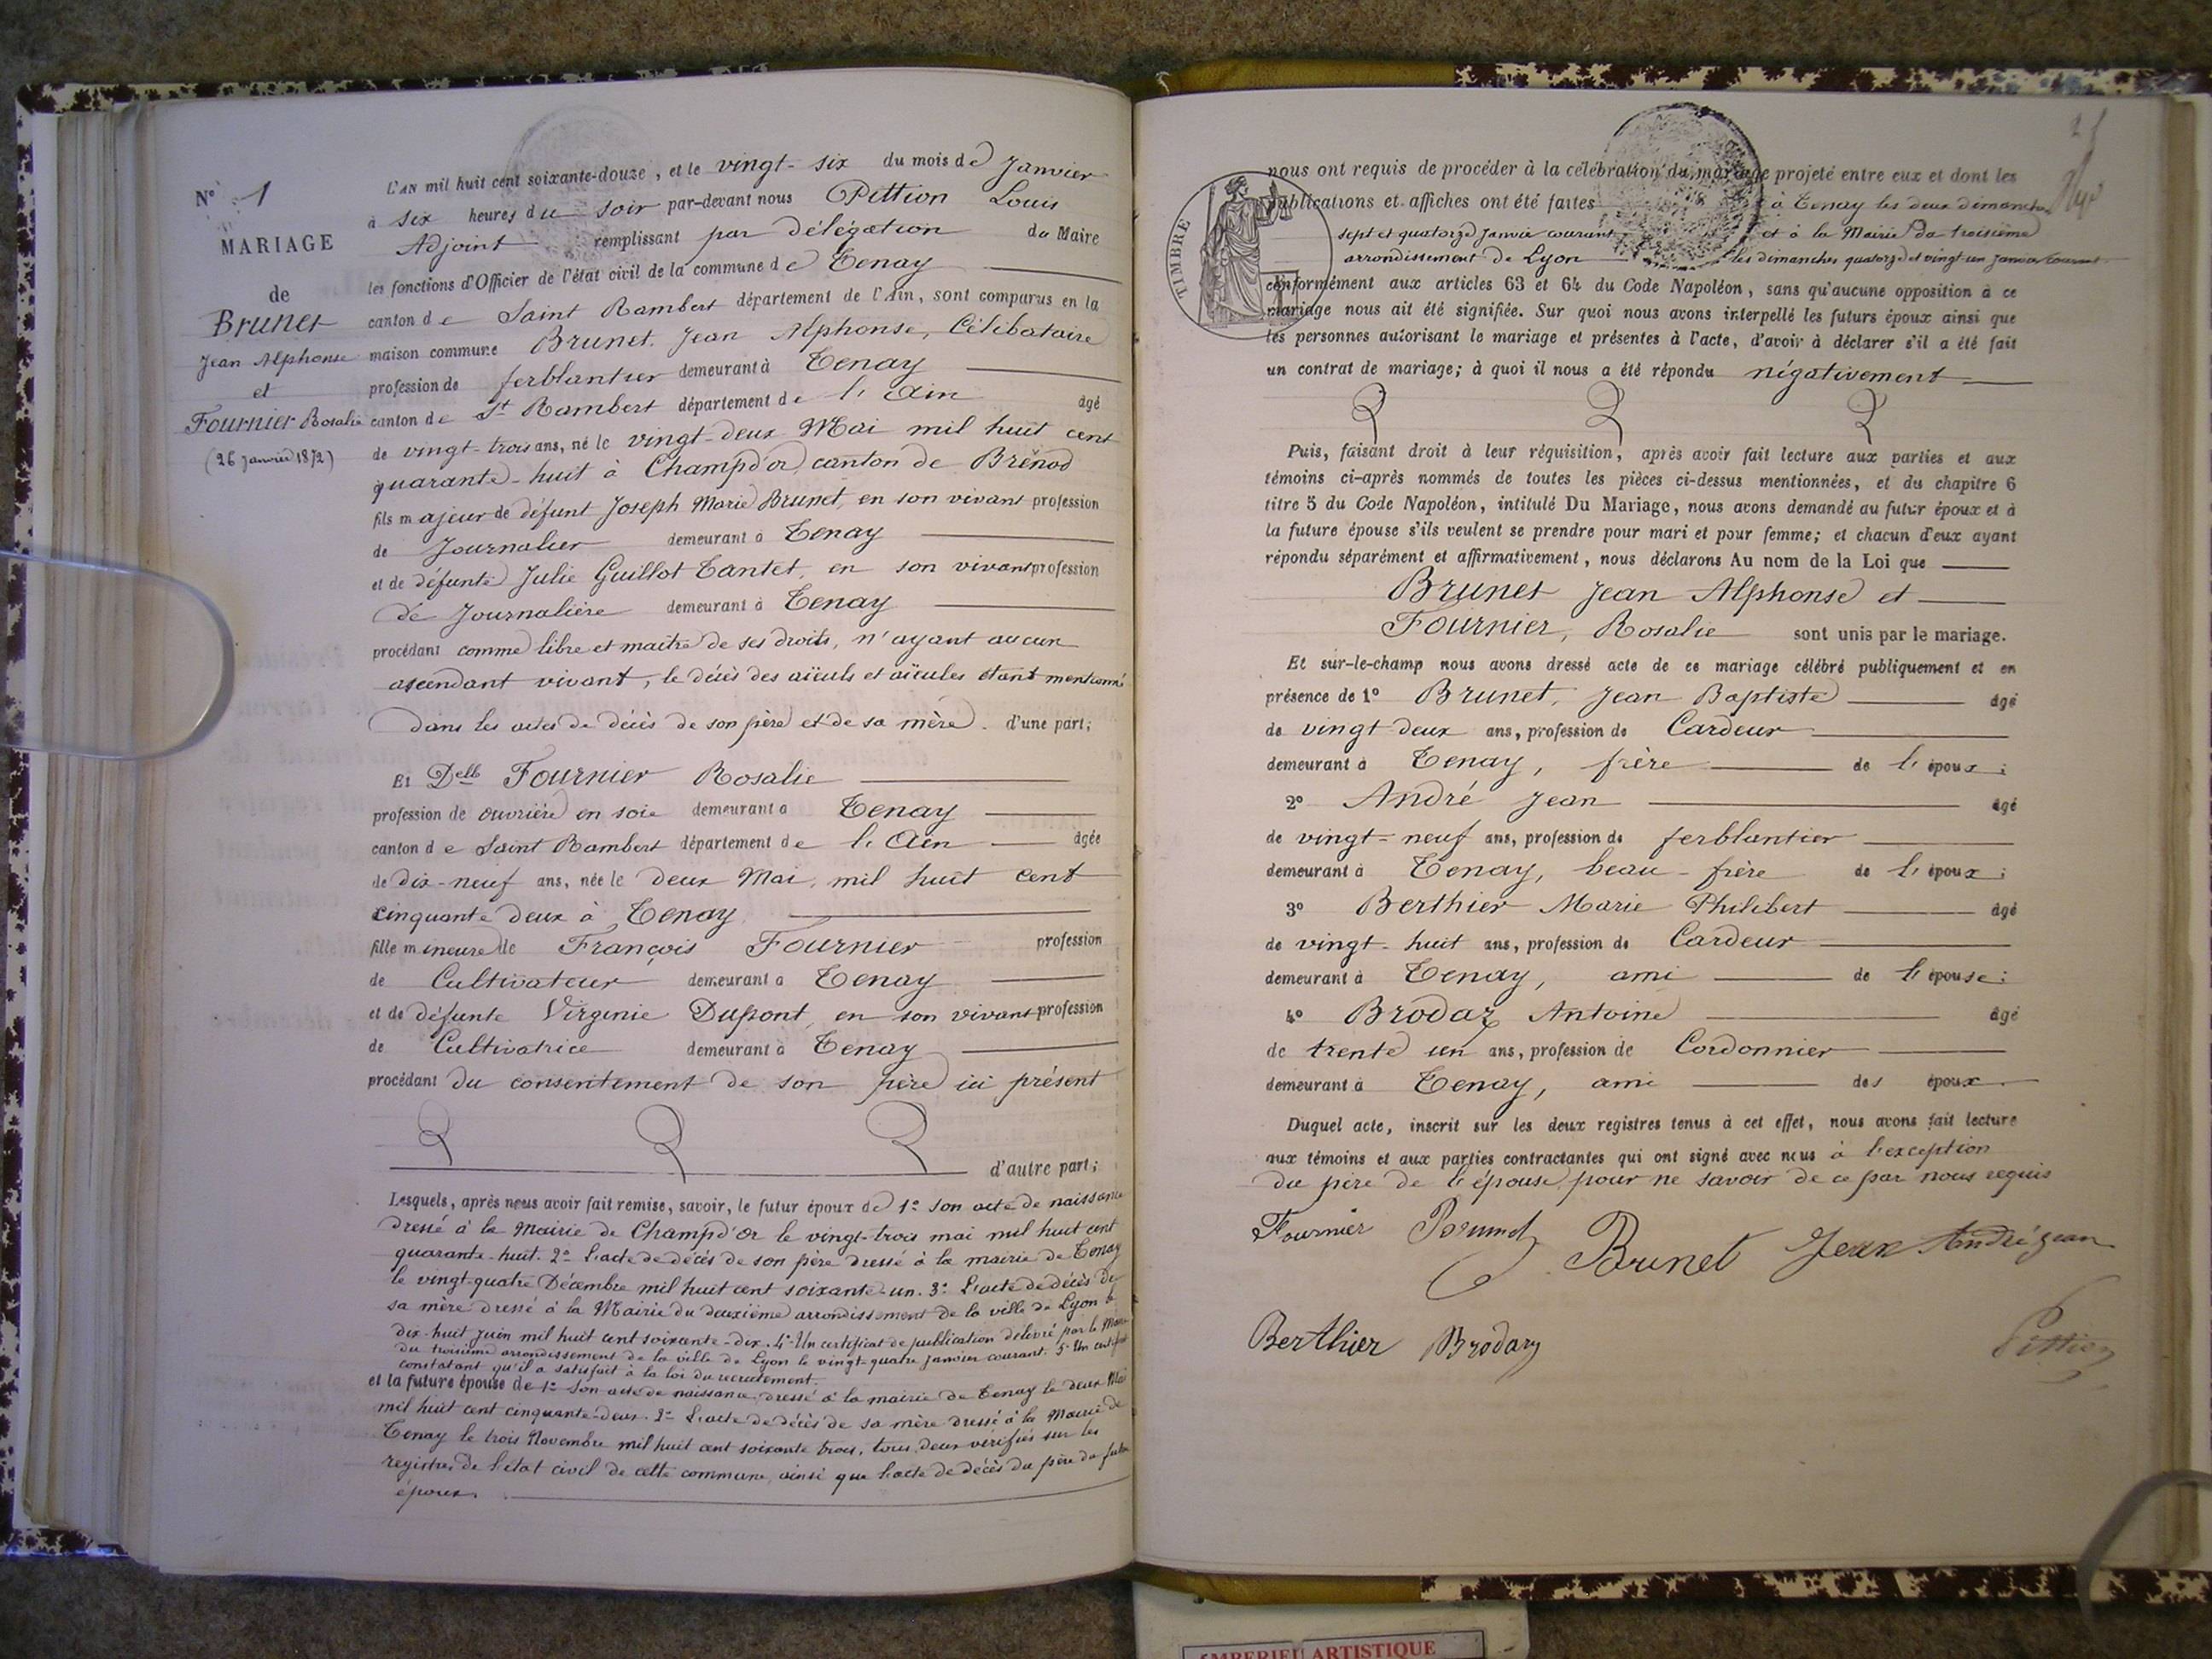 N° 1
MARIAGE
de
Brunet
Jean Alphonse
et
Fournier Rosalie
(26 janvier 1872)
L'AN mil huit cent soixante-douze, et le vingt-six du mois de Janvier
à six heures du soir par-devant nous Pittion Louis
Adjoint remplissant par délégation du Maire
les fonctions d'Officier de l'état civil de la commune de Tenay
canton de Saint Rambert département de l'Ain, sont comparus en la
maison commune Brunet Jean Alphonse, Célibataire
profession de ferblantier demeurant à Tenay
canton de St Rambert département de l'Ain âgé
de vingt-trois ans, né le vingt-deux Mai mil huit cent
quarante-huit à Champd'or, canton de Brénod
fils majeur de défunt Joseph Marie Brunet, en son vivant profession
de Journalier demeurant à Tenay
et de défunte Julie Guillot Tantet, en son vivant profession
de Journalière demeurant à Tenay
procédant comme libre et maître de ses droits, n'ayant aucun
ascendant vivant, le décès des aïeuls et aïeules étant mentionné
dans les actes de décès de son père et de sa mère. d'une part;
Et Delle Fournier Rosalie
profession de ouvrière en soie demeurant à Tenay
canton de Saint Rambert département de l'Ain âgée
de dix-neuf ans, née le deux Mai, mil huit cent
cinquante deux à Tenay
fille mineure de François Fournier profession
de Cultivateur demeurant à Tenay
et de défunte Virginie Dupont, en son vivant profession
de Cultivatrice demeurant à Tenay
procédant du consentement de son père ici présent
d'autre part;
Lesquels, après nous avoir fait remise, savoir, le futur époux de 1° son acte de naissance
dressé à la Mairie de Champd'or le vingt-trois mai mil huit cent
quarante-huit. 2° L'acte de décès de son père dressé à la mairie de Tenay
le vingt-quatre Décembre mil huit cent soixante-un. 3° L'acte de décès de
sa mère dressé à la Mairie du deuxième arrondissement de la ville de Lyon le
dix-huit juin mil huit cent soixante-dix. 4° Un certificat de publication délivré par le Maire
du troisième arrondissement de la ville de Lyon le vingt-quatre janvier courant. 5° Un certificat
constatant qu'il a satisfait à la loi du recrutement.
et la future épouse de 1° Son acte de naissance dressé à la mairie de Tenay le deux Mai
mil huit cent cinquante-deux. 2° L'acte de décès de sa mère dressé à la Mairie de
Tenay le trois Novembre mil huit cent soixante trois, tous deux vérifiés sur les
registres de l'état civil de cette commune, ainsi que l'acte de décès du père du futur
époux.
TIMBRE
nous ont requis de procéder à la célébration du mariage projeté entre eux et dont les
publications et affiches ont été faites à Tenay les deux dimanches
sept et quatorze Janvier courant et à la Mairie du troisième
arrondissement de Lyon les dimanches quatorze et vingt-un janvier courant
conformément aux articles 63 et 64 du Code Napoléon, sans qu'aucune opposition à ce
mariage nous ait été signifiée. Sur quoi nous avons interpellé les futurs époux ainsi que
les personnes autorisant le mariage et présentes à l'acte, d'avoir à déclarer s'il a été fait
un contrat de mariage; à quoi il nous a été répondu négativement
Puis, faisant droit à leur réquisition, après avoir fait lecture aux parties et aux
témoins ci-après nommés de toutes les pièces ci-dessus mentionnées, et du chapitre 6
titre 5 du Code Napoléon, intitulé Du Mariage, nous avons demandé au futur époux et à
la future épouse s'ils veulent se prendre pour mari et pour femme; et chacun d'eux ayant
répondu séparément et affirmativement, nous déclarons Au nom de la Loi que
Brunet Jean Alphonse et
Fournier, Rosalie sont unis par le mariage.
Et sur-le-champ nous avons dressé acte de ce mariage célébré publiquement et en
présence de 1° Brunet, Jean Baptiste âgé
de vingt deux ans, profession de Cardeur
demeurant à Tenay, frère de l'époux;
2° André Jean âgé
de vingt-neuf ans, profession de ferblantier
demeurant à Tenay, beau-frère de l'époux;
3° Berthier Marie Philibert âgé
de vingt-huit ans, profession de Cardeur
demeurant à Tenay, ami de l'épouse;
4° Brodaz Antoine âgé
de trente un ans, profession de Cordonnier
demeurant à Tenay, ami des époux
Duquel acte, inscrit sur les deux registres tenus à cet effet, nous avons fait lecture
aux témoins et aux parties contractantes qui ont signé avec nous à l'exception
du père de l'épouse pour ne savoir de ce par nous requis
Fournier Brunet Brunet Jean André Jean
Berthier Brodaz Pittion
AMBERIEU ARTISTIQUE